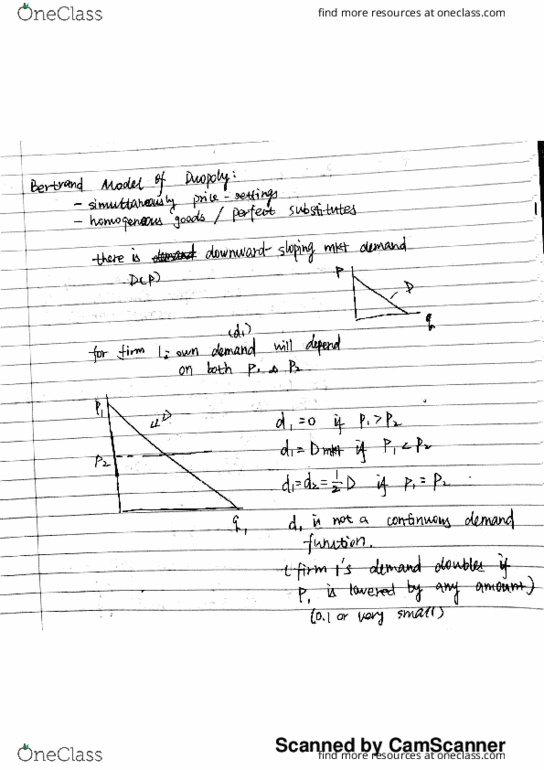 OneClass
find more resources at oneclass.com
Bertrand Model of Duopoly:
- simultaneously price-settings
- homogeneous goods / perfect substitutes
there is demand downward-sloping mkt demand
D(P)
P
D
q
(d1)
for firm 1: own demand will depend
on both P1 & P2
P1
D
P2
q1
d1=0 if P1>P2
d1=Dmkt if P1<P2
d1=d2=1/2D if P1=P2
d1 is not a continuous demand
function.
(firm 1's demand doubles if
P1 is lowered by any amount)
(0.1 or very small)
Scanned by CamScanner
OneClass
find more resources at oneclass.com